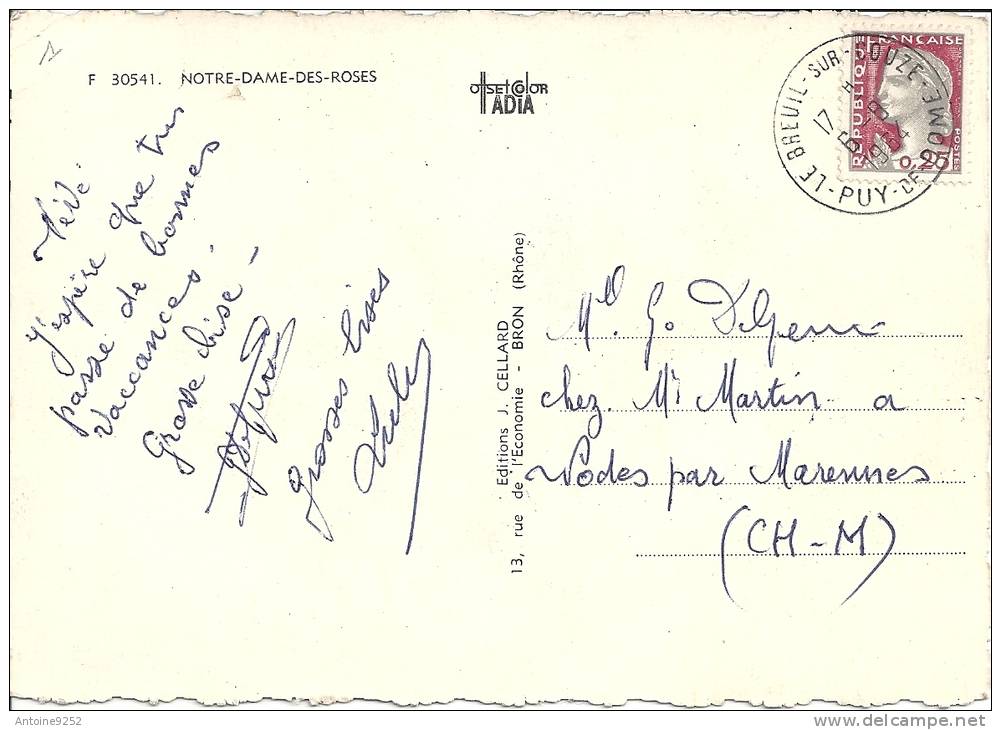 F 30541. NOTRE-DAME-DES-ROSES
OFFSET COLOR
ADIA
RÉPUBLIQUE FRANÇAISE
0,25
POSTES
LE BREUIL-SUR-COUZE
PUY-DE-DOME
17 H
1964
j'espère que tu as
passé de bonnes
vaccances.
Grosse bise -
Grosses bises
Editions J. CELLARD
13, rue de l'Economie - BRON (Rhône)
Mlle G.
chez Mr Martin a
par Marennes
(CH-M)
Antoine9252
delcampe.net